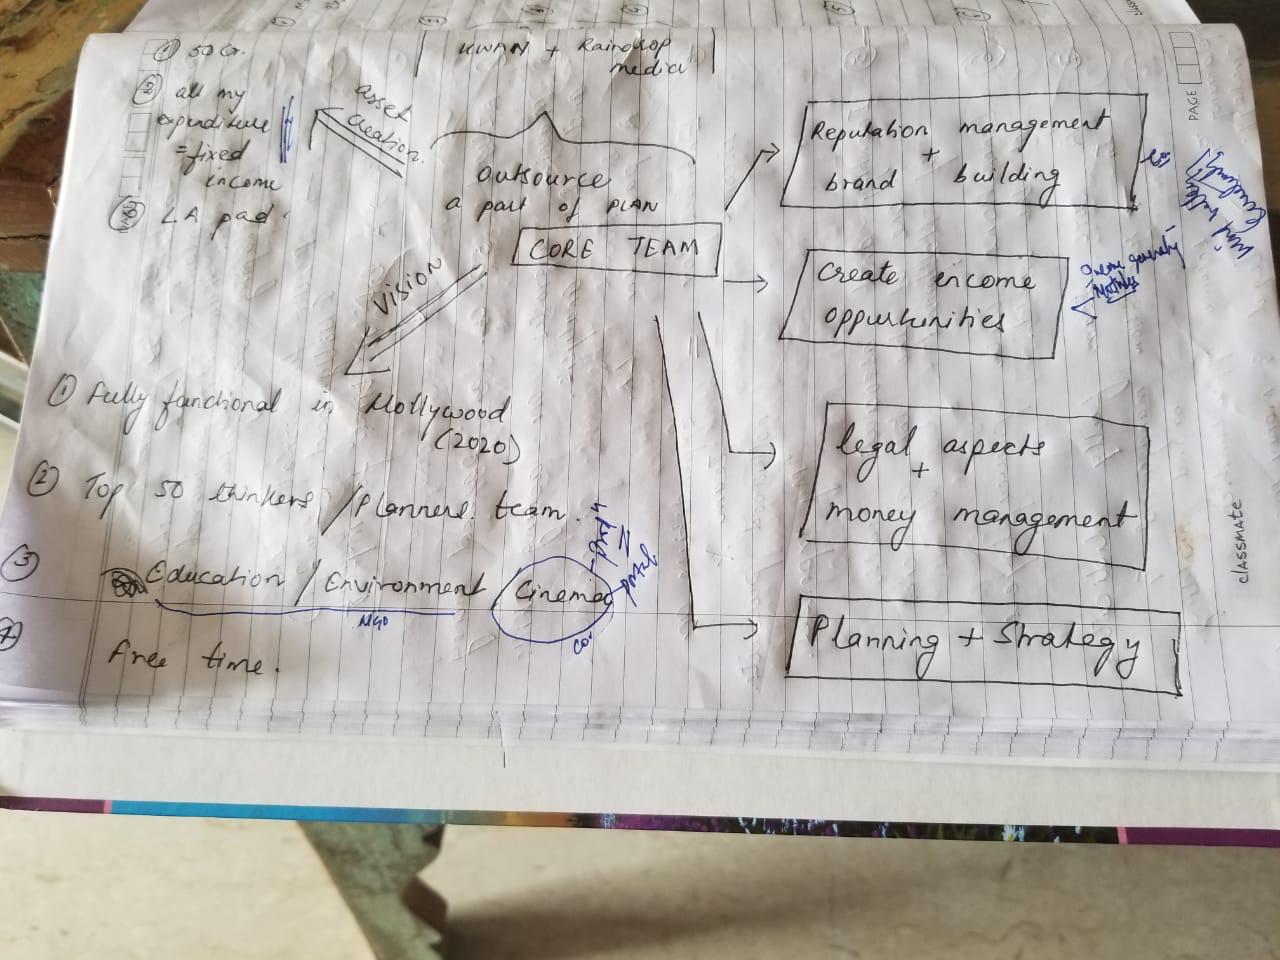 ① 50 Cr.
② all my
expenditure
= fixed
income
LA pad.
asset
creation.
KWAN + Raindrop
media
Outsource
a part of PLAN
CORE TEAM
Vision
① Fully functional in Hollywood
(2020)
② Top 50 thinkers / Planners team.
③ Education / Environment Cinema
NGO
co.
Free time.
Reputation management
+
brand building
Create income
oppurtunities
legal aspects
+
money management
Planning + Strategy
PAGE
classmate